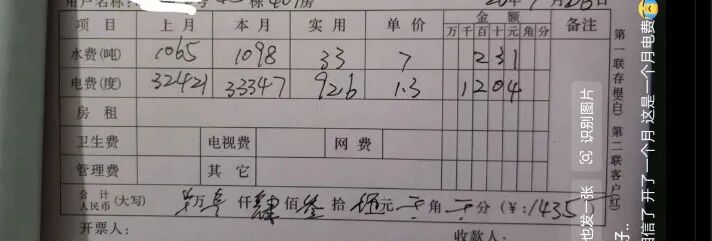 栋401房
项目 上月 本月 实用 单价 金额 万千百十元角分 备注
水费(吨) 1065 1098 33 7 231
电费(度) 32421 33347 926 1.3 1204
房租
卫生费 电视费 网费
管理费 其它
合计人民币(大写) 万壹仟肆佰叁拾伍元 角 分(¥:1435)
开票人: 收款人:
第一联存根(白) 第二联客户(红)
也发一张
识别图片
相信了 开了一个月 这是一个月电费😭
子..